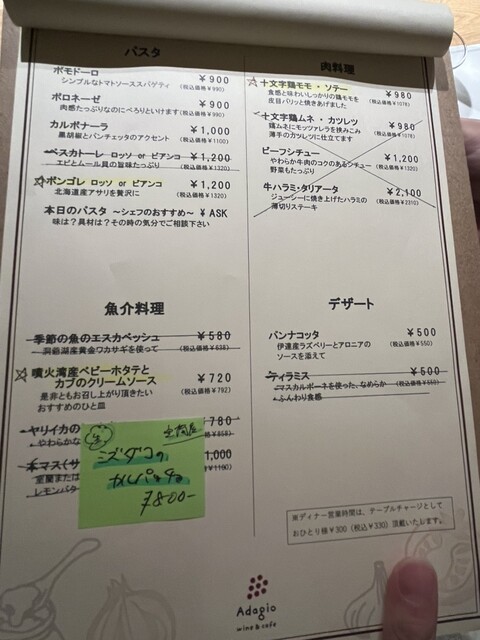 パスタ
ポモドーロ ¥900
シンプルなトマトソーススパゲティ (税込価格¥990)
ボロネーゼ ¥900
肉感たっぷりなのにぺろりといけます (税込価格¥990)
カルボナーラ ¥1,000
黒胡椒とパンチェッタのアクセント (税込価格¥1100)
ペスカトーレ ロッソ or ビアンコ ¥1,200
エビとムール貝の旨味たっぷり (税込価格¥1320)
ボンゴレ ロッソ or ビアンコ ¥1,200
北海道産アサリを贅沢に (税込価格¥1320)
本日のパスタ ～シェフのおすすめ～ ¥ ASK
味は？具材は？その時の気分でご相談下さい
魚介料理
季節の魚のエスカベッシュ ¥580
洞爺湖産黄金ワカサギを使って (税込価格¥638)
噴火湾産ベビーホタテと
カブのクリームソース ¥720
是非ともお召し上がり頂きたい (税込価格¥792)
おすすめのひと皿
ヤリイカの ¥780
やわらかな (税込価格¥858)
本マス(サ 1,000
室蘭または (税込価格¥1100)
レモンバタ
生
ミズダコの
カルパッチョ
¥800-
肉料理
十文字鶏モモ・ソテー ¥980
食感と味わいしっかりの鶏モモを (税込価格¥1078)
皮目パリッと焼きあげました
十文字鶏ムネ・カツレツ ¥980
鶏ムネにモッツァレラを挟みこみ (税込価格¥1078)
薄手のカツレツに仕立てます
ビーフシチュー ¥1,200
やわらか牛肉のコクのあるシチュー (税込価格¥1320)
野菜もたっぷり
牛ハラミ・タリアータ ¥2,100
ジューシーに焼き上げたハラミの (税込価格¥2310)
薄切りステーキ
デザート
パンナコッタ ¥500
伊達産ラズベリーとアロニアの (税込価格¥550)
ソースを添えて
ティラミス ¥500
マスカルポーネを使った、なめらか (税込価格¥550)
ふんわり食感
※ディナー営業時間は、テーブルチャージとして
おひとり様¥300（税込¥330）頂戴いたします。
Adagio
wine & cafe